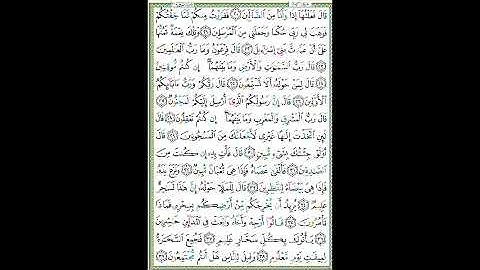 قَالَ فَعَلْتُهَا إِذًا وَأَنَا مِنَ الضَّالِّينَ ٢٠ فَفَرَرْتُ مِنكُمْ لَمَّا خِفْتُكُمْ
فَوَهَبَ لِي رَبِّي حُكْمًا وَجَعَلَنِي مِنَ الْمُرْسَلِينَ ٢١ وَتِلْكَ نِعْمَةٌ تَمُنُّهَا
عَلَيَّ أَنْ عَبَّدتَّ بَنِي إِسْرَائِيلَ ٢٢ قَالَ فِرْعَوْنُ وَمَا رَبُّ الْعَالَمِينَ
٢٣ قَالَ رَبُّ السَّمَاوَاتِ وَالْأَرْضِ وَمَا بَيْنَهُمَا إِن كُنتُم مُّوقِنِينَ
٢٤ قَالَ لِمَنْ حَوْلَهُ أَلَا تَسْتَمِعُونَ ٢٥ قَالَ رَبُّكُمْ وَرَبُّ آبَائِكُمُ
الْأَوَّلِينَ ٢٦ قَالَ إِنَّ رَسُولَكُمُ الَّذِي أُرْسِلَ إِلَيْكُمْ لَمَجْنُونٌ ٢٧
قَالَ رَبُّ الْمَشْرِقِ وَالْمَغْرِبِ وَمَا بَيْنَهُمَا إِن كُنتُمْ تَعْقِلُونَ ٢٨ قَالَ
لَئِنِ اتَّخَذْتَ إِلَٰهًا غَيْرِي لَأَجْعَلَنَّكَ مِنَ الْمَسْجُونِينَ ٢٩ قَالَ
أَوَلَوْ جِئْتُكَ بِشَيْءٍ مُّبِينٍ ٣٠ قَالَ فَأْتِ بِهِ إِن كُنتَ مِنَ
الصَّادِقِينَ ٣١ فَأَلْقَىٰ عَصَاهُ فَإِذَا هِيَ ثُعْبَانٌ مُّبِينٌ ٣٢ وَنَزَعَ يَدَهُ
فَإِذَا هِيَ بَيْضَاءُ لِلنَّاظِرِينَ ٣٣ قَالَ لِلْمَلَإِ حَوْلَهُ إِنَّ هَٰذَا لَسَاحِرٌ
عَلِيمٌ ٣٤ يُرِيدُ أَن يُخْرِجَكُم مِّنْ أَرْضِكُم بِسِحْرِهِ فَمَاذَا
تَأْمُرُونَ ٣٥ قَالُوا أَرْجِهْ وَأَخَاهُ وَابْعَثْ فِي الْمَدَائِنِ حَاشِرِينَ
٣٦ يَأْتُوكَ بِكُلِّ سَحَّارٍ عَلِيمٍ ٣٧ فَجُمِعَ السَّحَرَةُ
لِمِيقَاتِ يَوْمٍ مَّعْلُومٍ ٣٨ وَقِيلَ لِلنَّاسِ هَلْ أَنتُم مُّجْتَمِعُونَ ٣٩